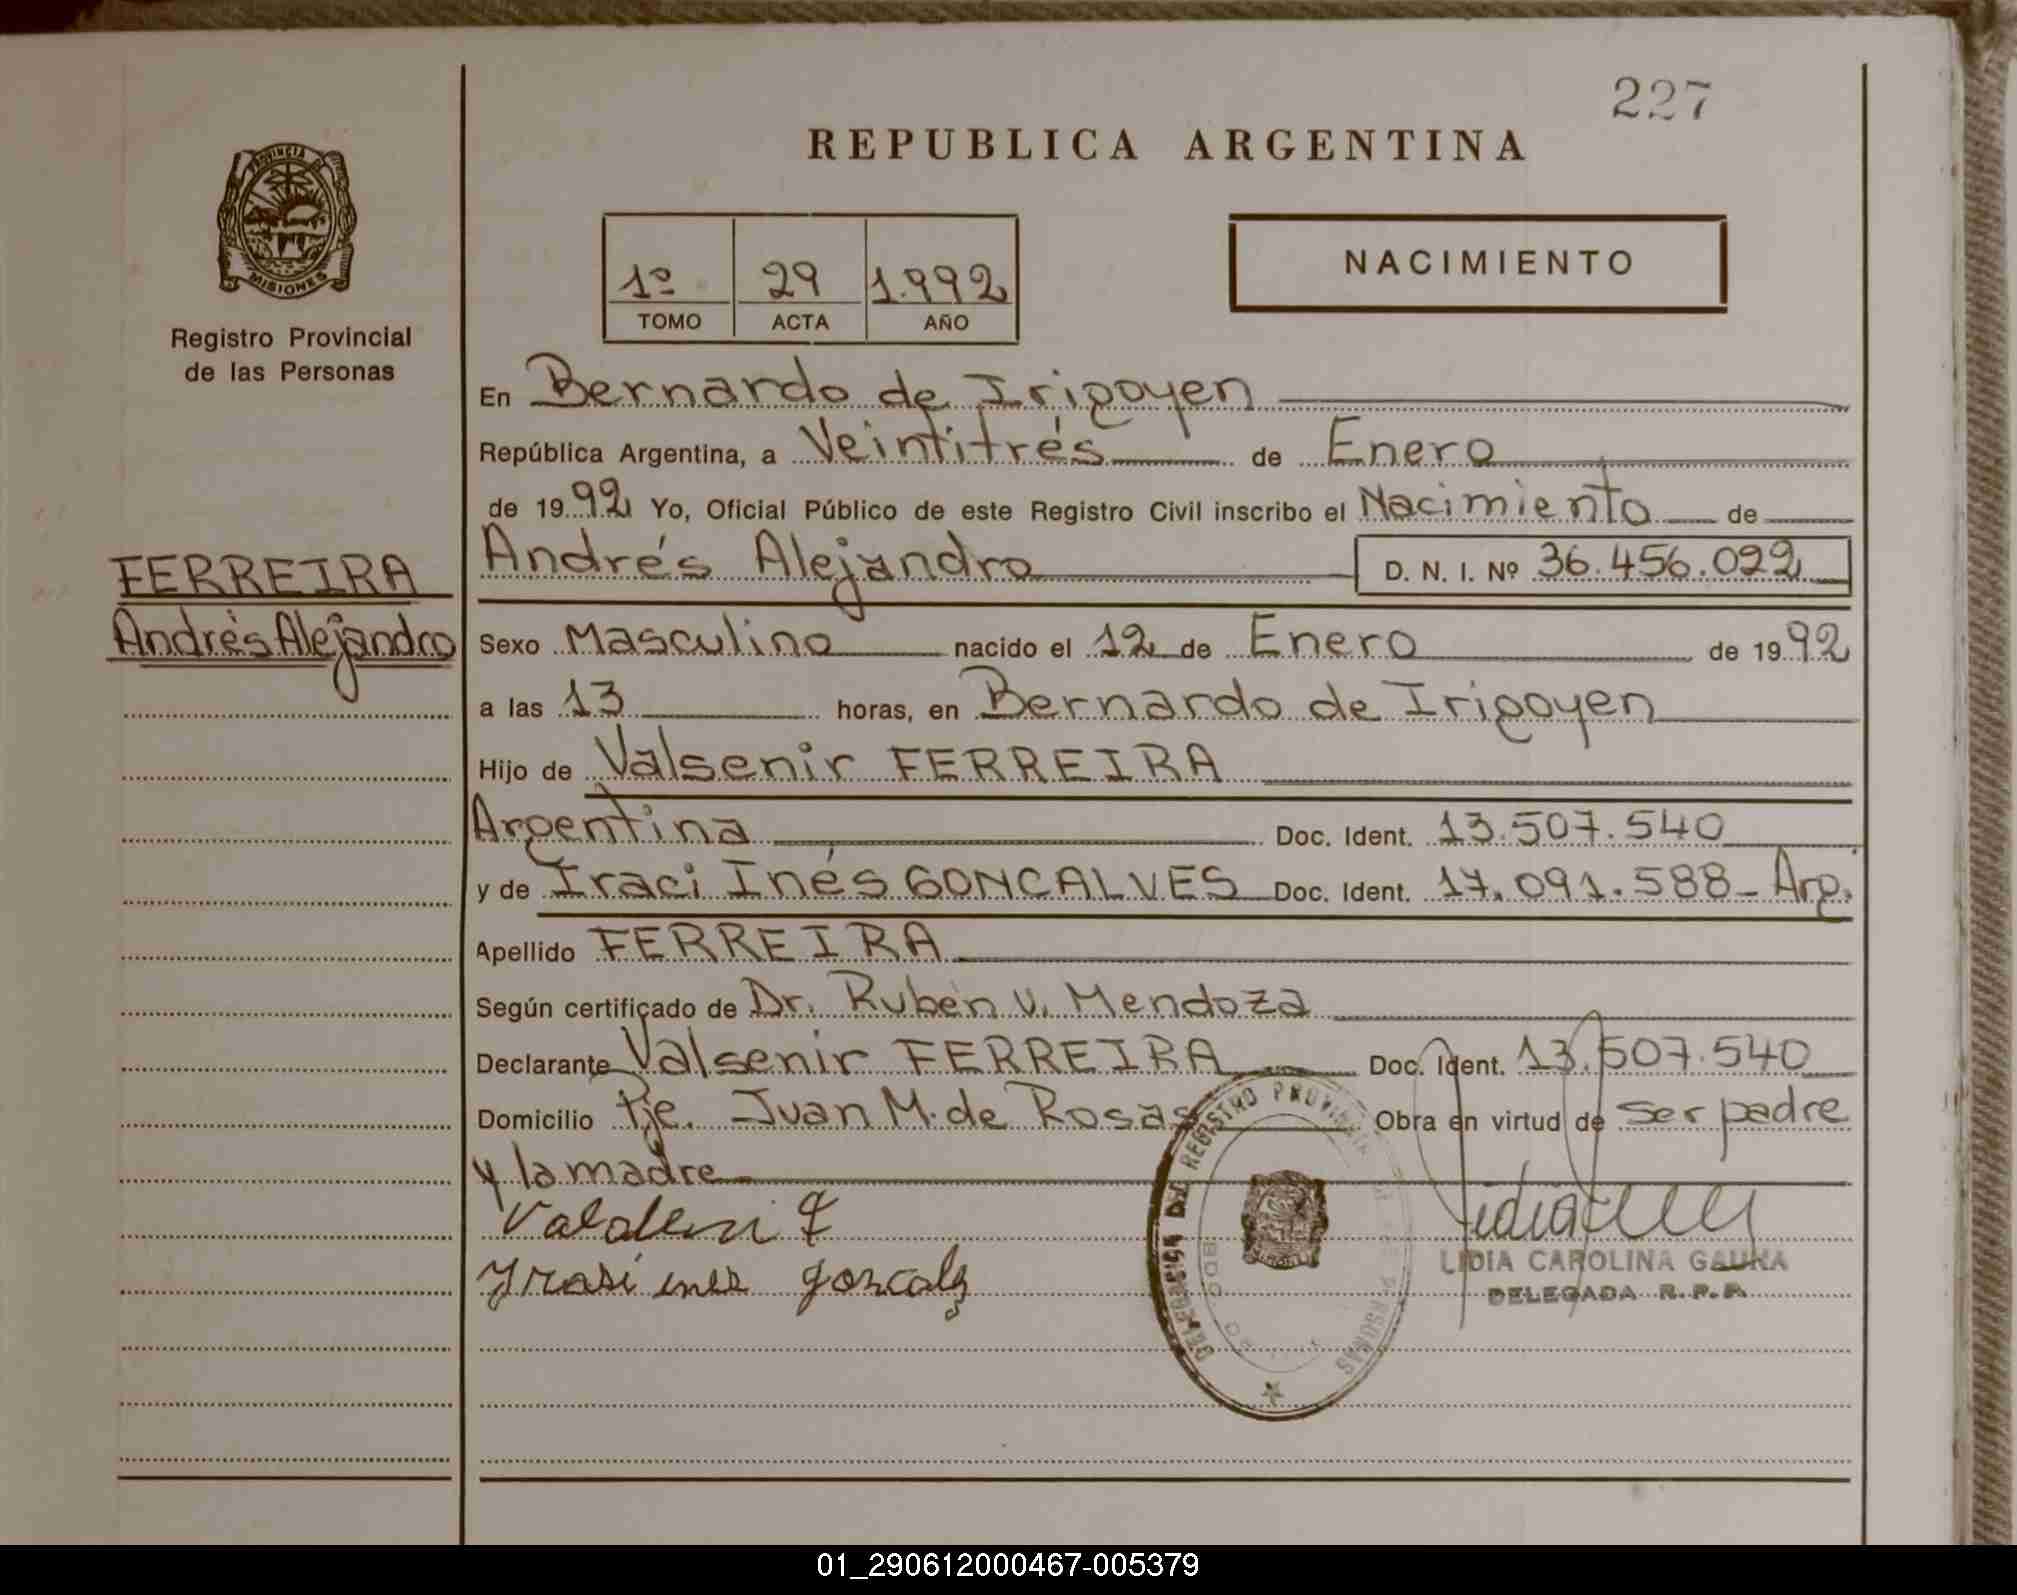 227
REPUBLICA ARGENTINA
PROVINCIA DE
MISIONES
Registro Provincial
de las Personas
1º 29 1.992
TOMO ACTA AÑO
NACIMIENTO
En Bernardo de Irigoyen
República Argentina, a Veintitrés de Enero
de 1992 Yo, Oficial Público de este Registro Civil inscribo el Nacimiento de
FERREIRA
Andrés Alejandro
Andrés Alejandro D. N. I. Nº 36.456.022
Sexo Masculino nacido el 12 de Enero de 1992
a las 13 horas, en Bernardo de Irigoyen
Hijo de Valsenir FERREIRA
Argentina Doc. Ident. 13.507.540
y de Iraci Inés GONCALVES Doc. Ident. 17.091.588- Arg.
Apellido FERREIRA
Según certificado de Dr. Rubén V. Mendoza
Declarante Valsenir FERREIRA Doc. Ident. 13.507.540
Domicilio Pje. Juan M. de Rosas Obra en virtud de ser padre
y la madre
DELEGACION DEL REGISTRO PROVINCIAL DE LAS PERSONAS
BDO
LIDIA CAROLINA GAUNA
DELEGADA R. P. P.
01_290612000467-005379